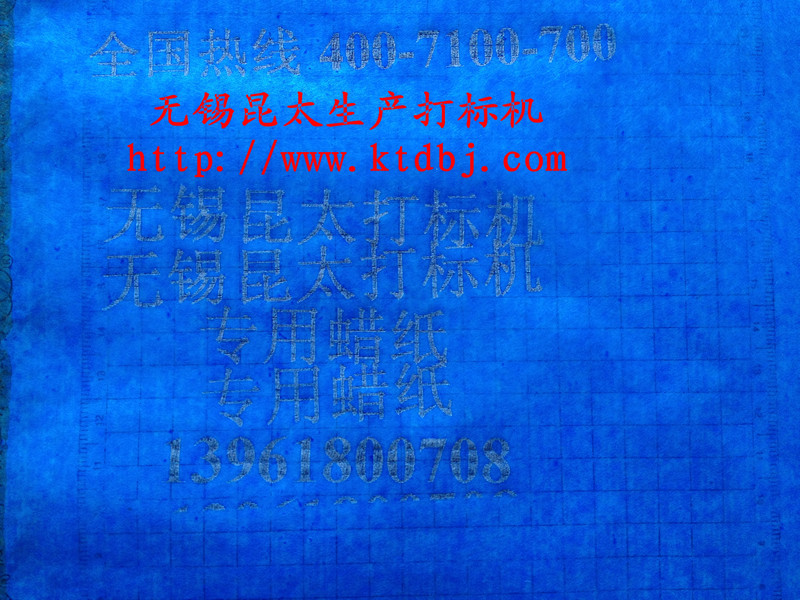 全国热线 400-7100-700
无锡昆太生产打标机
http://www.ktdbj.com
无锡昆太打标机
无锡昆太打标机
专用蜡纸
专用蜡纸
13961800708